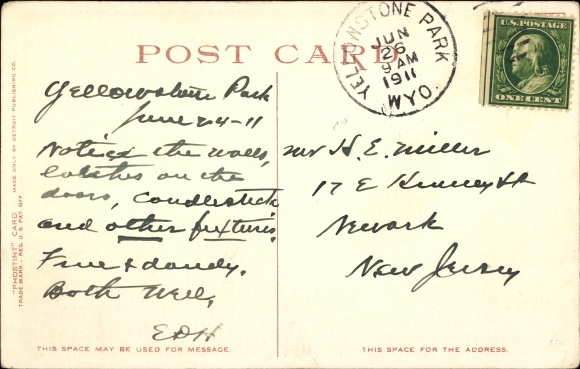 POST CARD
YELLOWSTONE PARK
JUN
26
9 AM
1911
WYO.
U.S. POSTAGE
ONE CENT
Yellowstone Park
June 24-11
Notice the walls,
latches on the
doors, candlestick
and other fixtures.
Fine & dandy.
Both Well,
EDH
Mr H. E. Miller
17 E Kinney St
Newark
New Jersey
THIS SPACE MAY BE USED FOR MESSAGE.
THIS SPACE FOR THE ADDRESS.
"PHOSTINT" CARD. MADE ONLY BY DETROIT PUBLISHING CO.
TRADE MARK - REG. U.S. PAT. OFF.